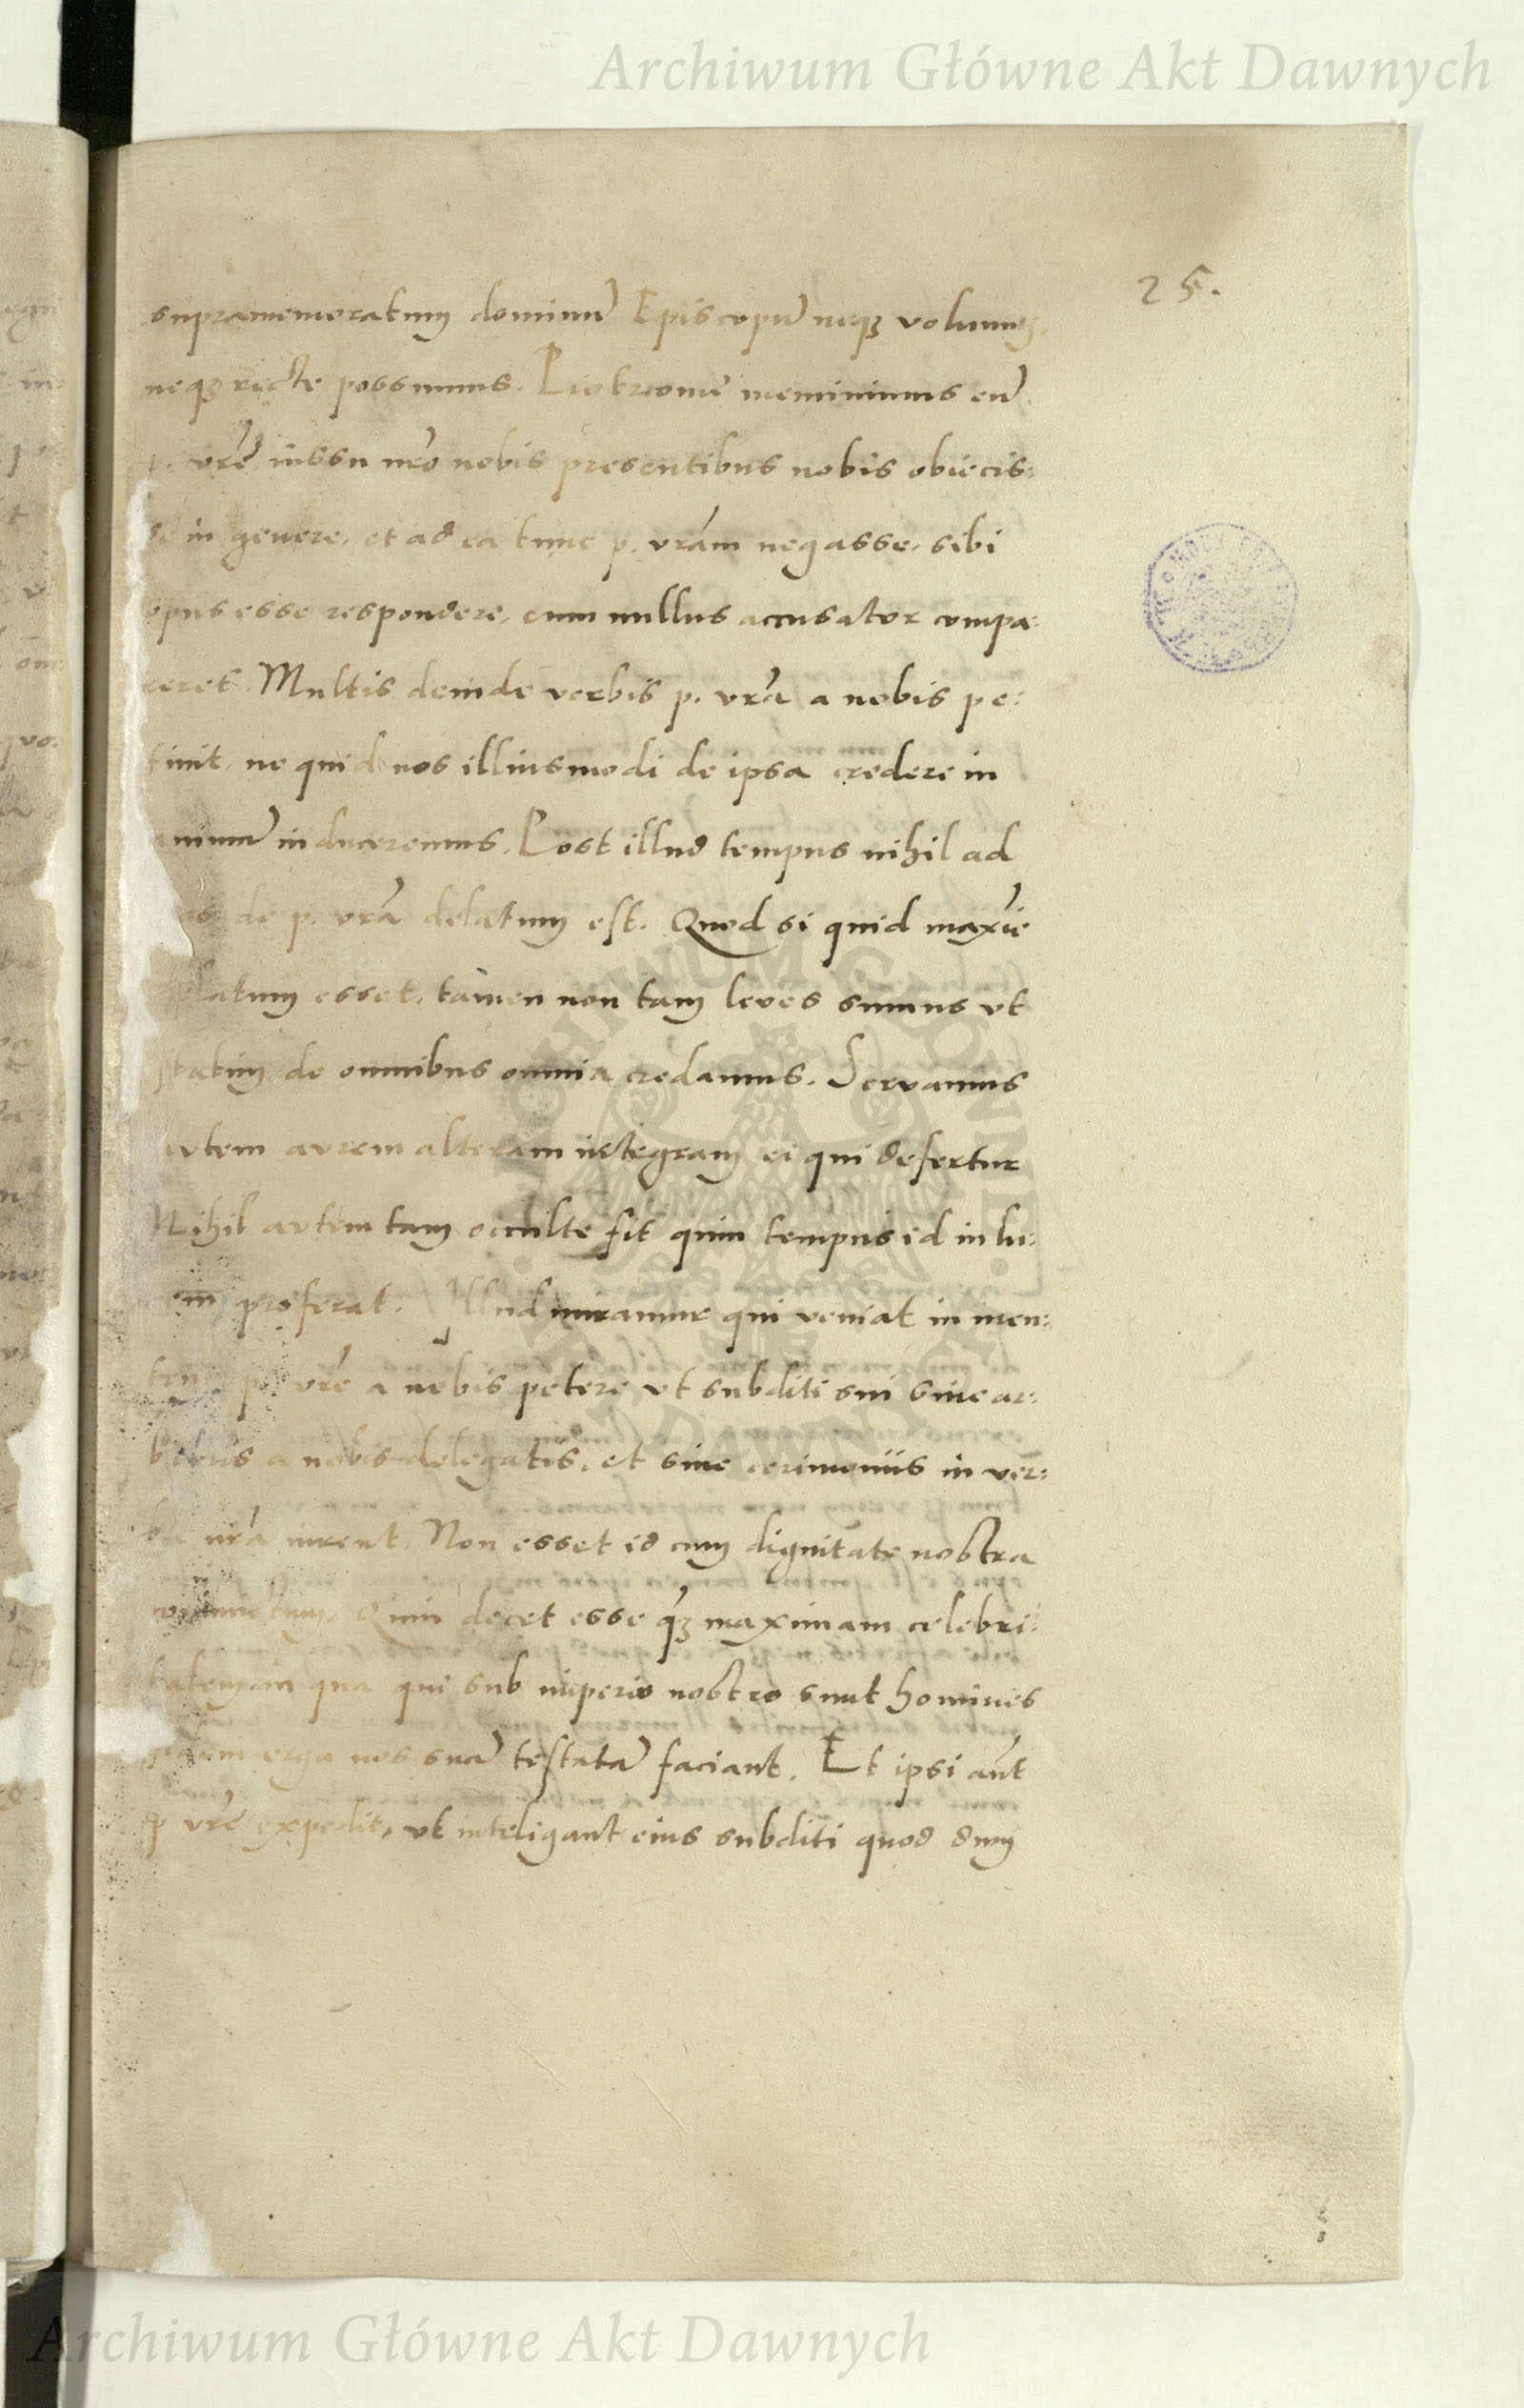 Archiwum Główne Akt Dawnych
25.
supramemoratum dominũ Episcopũ neqʒ volumus,
neqʒ recte possumus. Piotrcouie meminimus eũ
p. vrẽ iussu nrõ nobis presentibus nobis obiecis:
se in genere, et ad ea tunc p. vrãm negasse, sibi
opus esse respondere, cum nullus accusator compa:
reret. Multis deinde verbis p. vrã a nobis pe:
tiuit, ne quid nos illiusmodi de ipsa credere in
animũ induceremus. Post illud tempus nihil ad
nos de p. vrã delatum est. Quod si quid maxĩe
delatum esset, tamen non tam leues sumus vt
statim de omnibus omnia credamus. Servamus
avtem avrem alteram integram ei qui defertur
Nihil avtem tam occulte fit quin tempus id in lu:
cem proferat. Illud miramur qui veniat in men:
tem p. vrẽ a nobis petere vt subditi sui sine ar:
bitris a nobis delegatis, et sine cerimoniis in ver:
ba nrã iurent. Non esset id cum dignitate nostra
coniunctum, Quin decet esse q̃ʒ maximam celebri:
tatem in qua qui sub imperio nostro sunt homines
fidem erga nos suã testatã faciant. Et ipsi aũt
p vrẽ expedit, vt inteligant eius subditi quod dum
Archiwum Główne Akt Dawnych